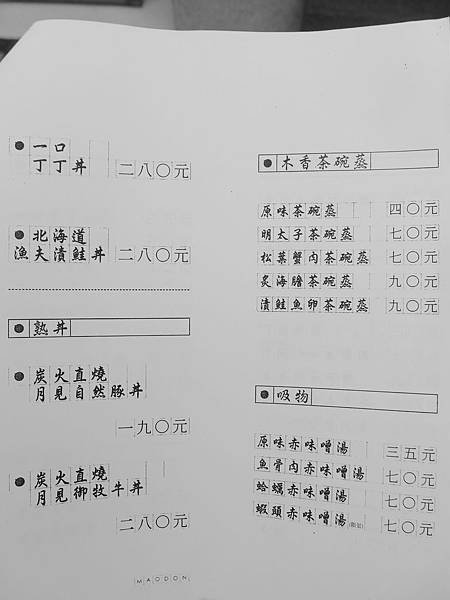 一口
丁丁丼 二八〇元
北海道
漁夫漬鮭丼 二八〇元
熟丼
炭火直燒
月見自然豚丼
一九〇元
炭火直燒
月見御牧牛丼
二八〇元
MAODON
木香茶碗蒸
原味茶碗蒸 四〇元
明太子茶碗蒸 七〇元
松葉蟹肉茶碗蒸 七〇元
炙海膽茶碗蒸 九〇元
漬鮭魚卵茶碗蒸 九〇元
吸物
原味赤味噌湯 三五元
魚骨肉赤味噌湯 七〇元
蛤蠣赤味噌湯 七〇元
蝦頭赤味噌湯 七〇元